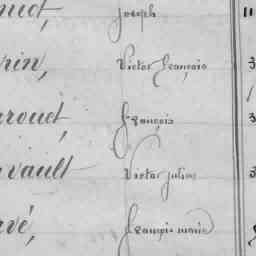 Joseph 11
rin, Victor françois 3
rouet, françois 3
vault Victor julien 3
vé, françois marie